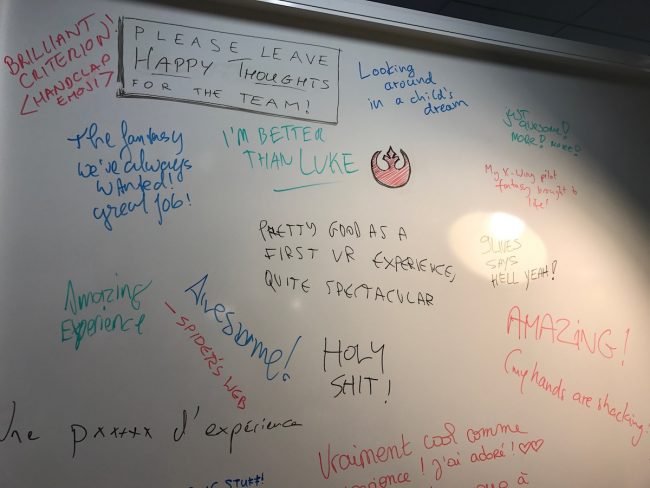 BRILLIANT
CRITERION!
<HANDCLAP
EMOJI>
PLEASE LEAVE
HAPPY THOUGHTS
FOR THE TEAM!
Looking
around
in a child's
dream
just
awesome!
MORE! MORE!
The fantasy
we've always
wanted!
great job!
I'M BETTER
THAN LUKE
My X-Wing pilot
fantasy brought to
life!
PRETTY GOOD AS A
FIRST VR EXPERIENCE,
QUITE SPECTACULAR
9LIVES
SAYS
HELL YEAH!
Amazing
Experience
Awesome!
- SPIDER'S WEB
HOLY
SHIT!
AMAZING!
(my hands are shacking!
Une p××××× d'expérience
Vraiment cool comme
! j'ai adoré! ♡♡
STUFF!